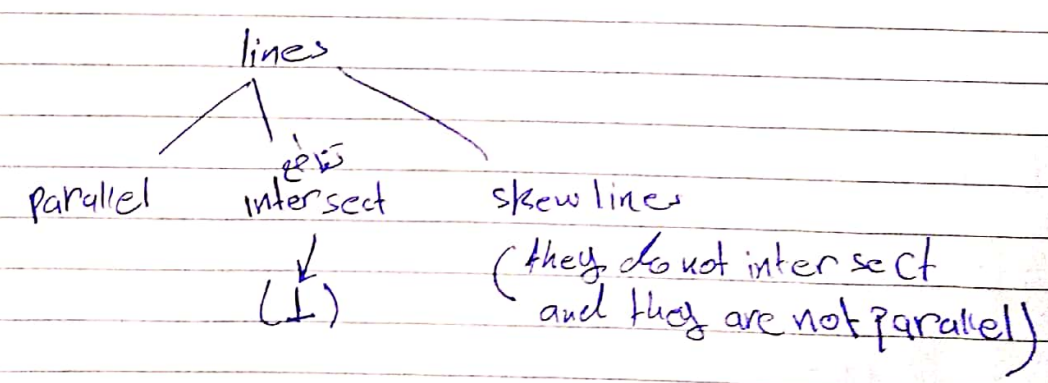 lines
parallel
تقاطع
intersect
(⊥)
skew lines
(they do not intersect
and they are not parallel)